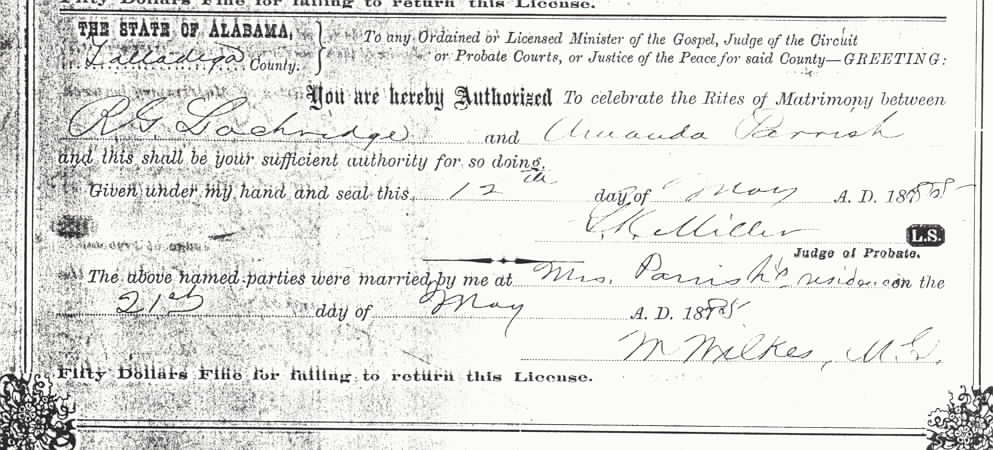 Fifty Dollars Fine for failing to return this License.
THE STATE OF ALABAMA,
Talladega County.
To any Ordained or Licensed Minister of the Gospel, Judge of the Circuit
or Probate Courts, or Justice of the Peace for said County—GREETING:
You are hereby Authorized To celebrate the Rites of Matrimony between
R.G. Lochridge and Amanda Parrish
and this shall be your sufficient authority for so doing.
Given under my hand and seal this 12th day of May A. D. 1885
Miller L.S.
Judge of Probate.
The above named parties were married by me at Mrs. Parrish's residence on the
21st day of May A. D. 1885
W Wilkes, M.G.
Fifty Dollars Fine for failing to return this License.